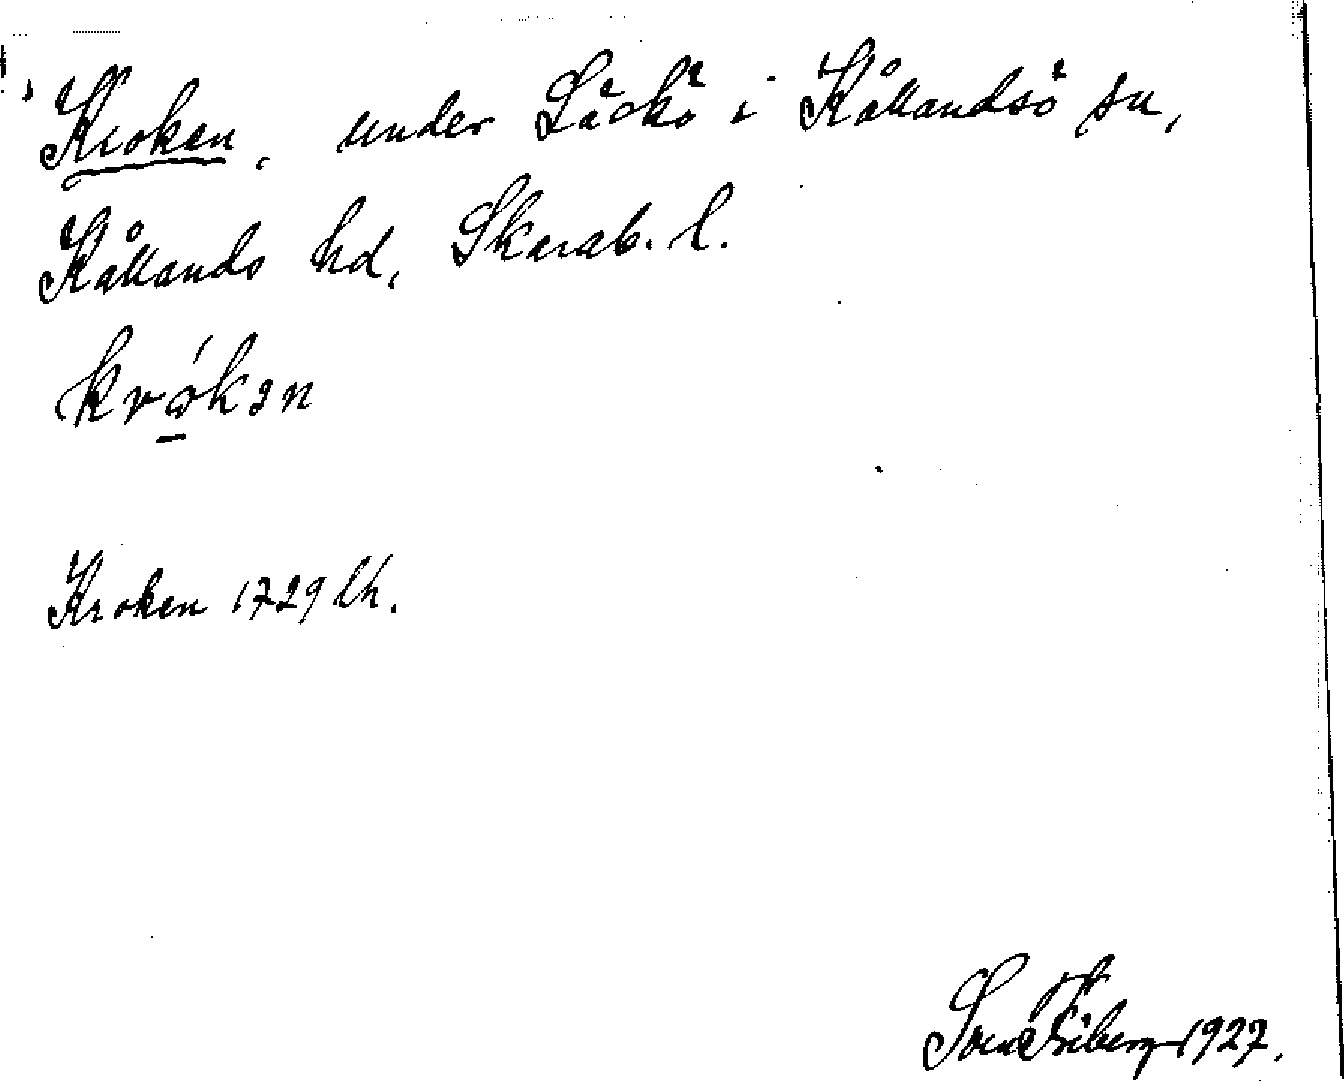 Kroken, under Läckö i Kållandsö sn,
Kållands hd, Skarab. l.
krókən
Kroken 1729 lh.
Sven Friberg 1927.